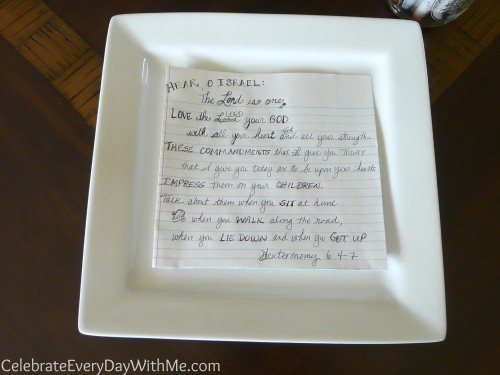 HEAR, O ISRAEL:
The Lord is one.
LOVE the LORD your GOD
with all your heart and all your strength
THESE COMMANDMENTS that I give you TODAY
that I give you today are to be upon your hearts
IMPRESS them on your CHILDREN.
Talk about them when you SIT at home
when you WALK along the road,
when you LIE DOWN and when you GET UP.
Deuteronomy 6:4-7
CelebrateEveryDayWithMe.com